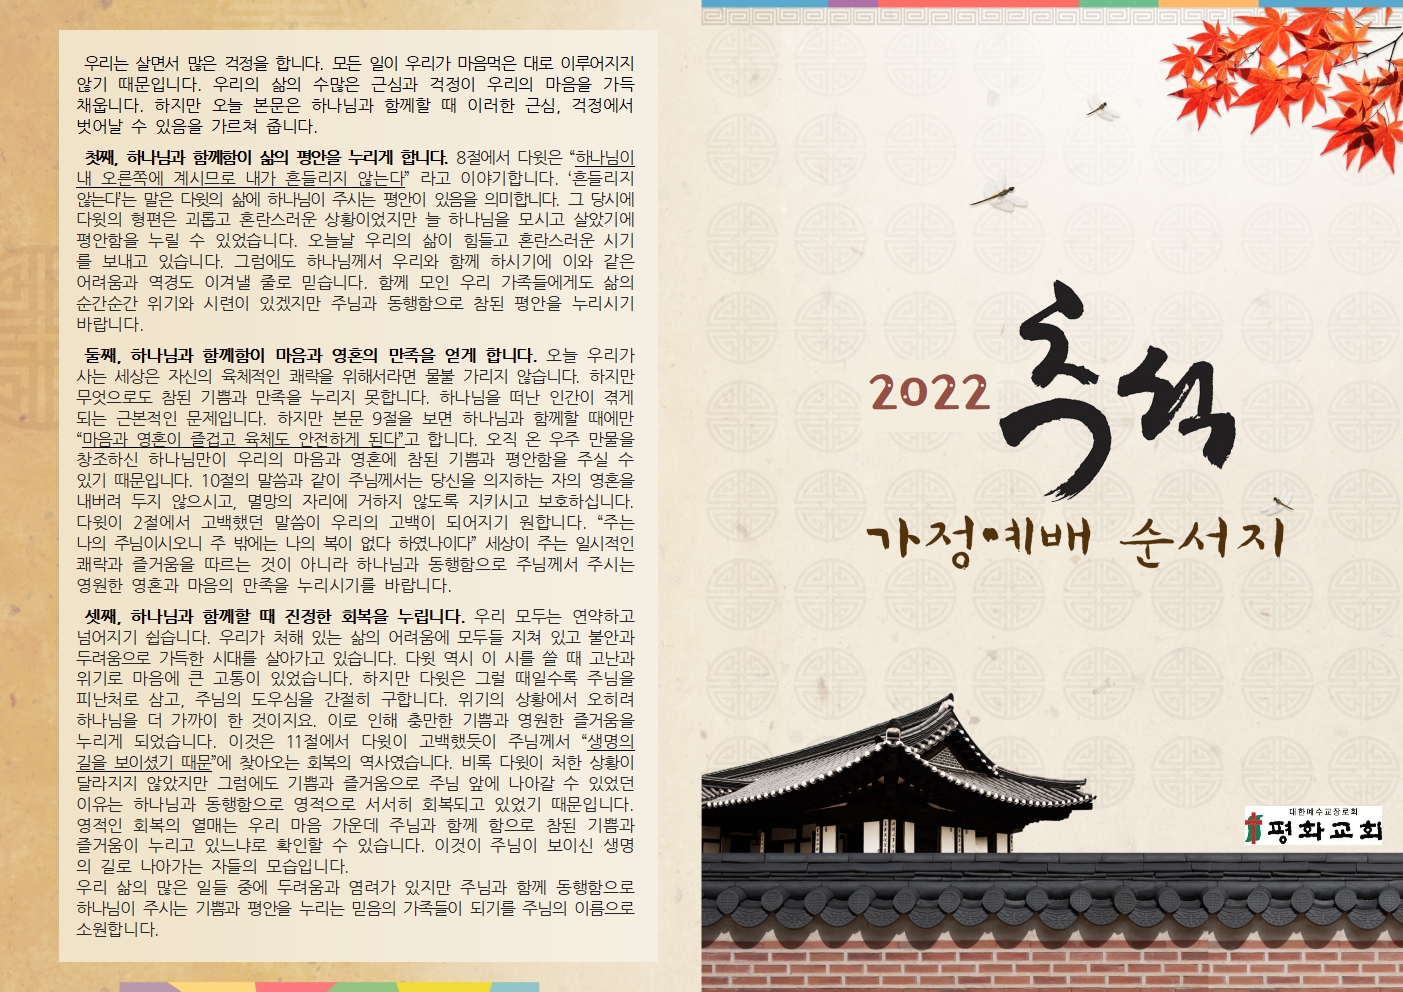 우리는 살면서 많은 걱정을 합니다. 모든 일이 우리가 마음먹은 대로 이루어지지
않기 때문입니다. 우리의 삶의 수많은 근심과 걱정이 우리의 마음을 가득
채웁니다. 하지만 오늘 본문은 하나님과 함께할 때 이러한 근심, 걱정에서
벗어날 수 있음을 가르쳐 줍니다.
첫째, 하나님과 함께함이 삶의 평안을 누리게 합니다. 8절에서 다윗은 “하나님이
내 오른쪽에 계시므로 내가 흔들리지 않는다” 라고 이야기합니다. ‘흔들리지
않는다’는 말은 다윗의 삶에 하나님이 주시는 평안이 있음을 의미합니다. 그 당시에
다윗의 형편은 괴롭고 혼란스러운 상황이었지만 늘 하나님을 모시고 살았기에
평안함을 누릴 수 있었습니다. 오늘날 우리의 삶이 힘들고 혼란스러운 시기
를 보내고 있습니다. 그럼에도 하나님께서 우리와 함께 하시기에 이와 같은
어려움과 역경도 이겨낼 줄로 믿습니다. 함께 모인 우리 가족들에게도 삶의
순간순간 위기와 시련이 있겠지만 주님과 동행함으로 참된 평안을 누리시기
바랍니다.
둘째, 하나님과 함께함이 마음과 영혼의 만족을 얻게 합니다. 오늘 우리가
사는 세상은 자신의 육체적인 쾌락을 위해서라면 물불 가리지 않습니다. 하지만
무엇으로도 참된 기쁨과 만족을 누리지 못합니다. 하나님을 떠난 인간이 겪게
되는 근본적인 문제입니다. 하지만 본문 9절을 보면 하나님과 함께할 때에만
“마음과 영혼이 즐겁고 육체도 안전하게 된다”고 합니다. 오직 온 우주 만물을
창조하신 하나님만이 우리의 마음과 영혼에 참된 기쁨과 평안함을 주실 수
있기 때문입니다. 10절의 말씀과 같이 주님께서는 당신을 의지하는 자의 영혼을
내버려 두지 않으시고, 멸망의 자리에 거하지 않도록 지키시고 보호하십니다.
다윗이 2절에서 고백했던 말씀이 우리의 고백이 되어지기 원합니다. “주는
나의 주님이시오니 주 밖에는 나의 복이 없다 하였나이다” 세상이 주는 일시적인
쾌락과 즐거움을 따르는 것이 아니라 하나님과 동행함으로 주님께서 주시는
영원한 영혼과 마음의 만족을 누리시기를 바랍니다.
셋째, 하나님과 함께할 때 진정한 회복을 누립니다. 우리 모두는 연약하고
넘어지기 쉽습니다. 우리가 처해 있는 삶의 어려움에 모두들 지쳐 있고 불안과
두려움으로 가득한 시대를 살아가고 있습니다. 다윗 역시 이 시를 쓸 때 고난과
위기로 마음에 큰 고통이 있었습니다. 하지만 다윗은 그럴 때일수록 주님을
피난처로 삼고, 주님의 도우심을 간절히 구합니다. 위기의 상황에서 오히려
하나님을 더 가까이 한 것이지요. 이로 인해 충만한 기쁨과 영원한 즐거움을
누리게 되었습니다. 이것은 11절에서 다윗이 고백했듯이 주님께서 “생명의
길을 보이셨기 때문”에 찾아오는 회복의 역사였습니다. 비록 다윗이 처한 상황이
달라지지 않았지만 그럼에도 기쁨과 즐거움으로 주님 앞에 나아갈 수 있었던
이유는 하나님과 동행함으로 영적으로 서서히 회복되고 있었기 때문입니다.
영적인 회복의 열매는 우리 마음 가운데 주님과 함께 함으로 참된 기쁨과
즐거움이 누리고 있느냐로 확인할 수 있습니다. 이것이 주님이 보이신 생명
의 길로 나아가는 자들의 모습입니다.
우리 삶의 많은 일들 중에 두려움과 염려가 있지만 주님과 함께 동행함으로
하나님이 주시는 기쁨과 평안을 누리는 믿음의 가족들이 되기를 주님의 이름으로
소원합니다.
2022 추석
가정예배 순서지
대한예수교장로회
평화교회